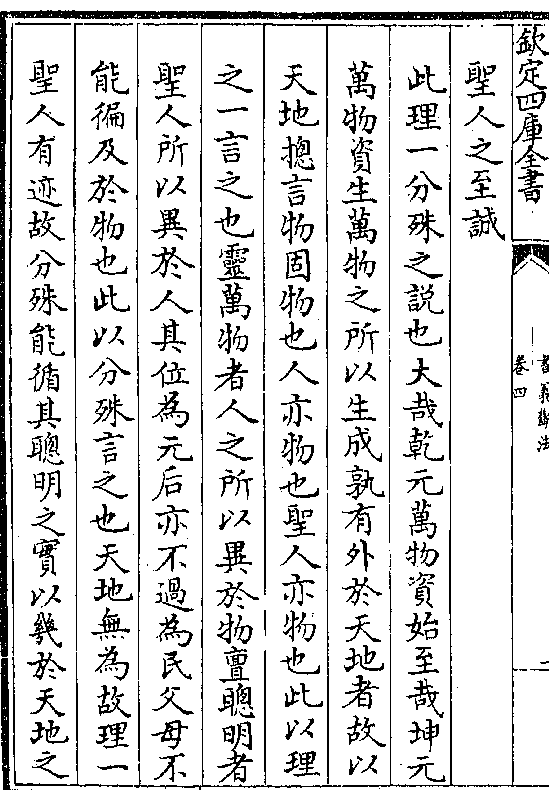 欽定四庫全書
書義斷法
卷四
二
聖人之至誠
此理一分殊之說也大哉乾元萬物資始至哉坤元
萬物資生萬物之所以生成孰有外於天地者故以
天地摠言物固物也人亦物也聖人亦物也此以理
之一言之也靈萬物者人之所以異於物亶聰明者
聖人所以異於人其位為元后亦不過為民父母不
能徧及於物也此以分殊言之也天地無為故理一
聖人有迹故分殊能循其聰明之實以幾於天地之